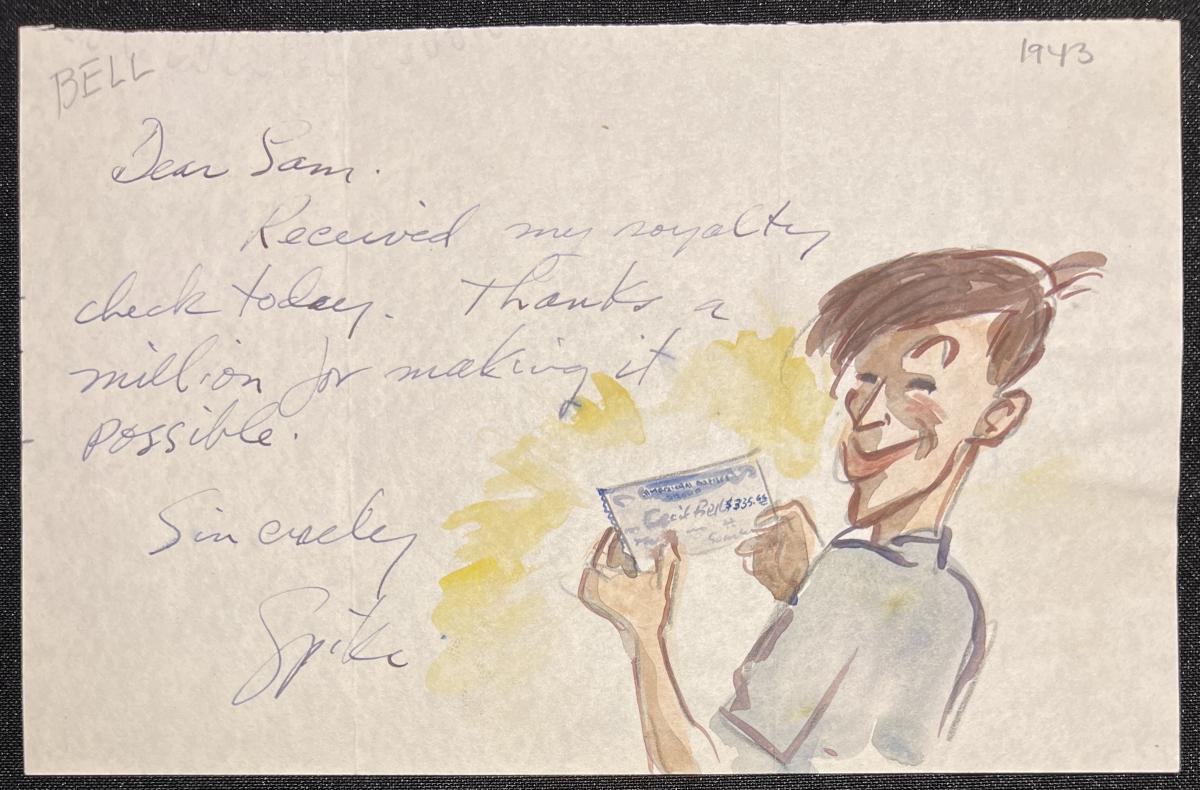 BELL
1943
Dear Sam.
Received my royalty
check today. Thanks a
million for making it
possible.
Sincerely
Spike
AMERICAN ARTISTS
GROUP
Cecil Bell $335.45